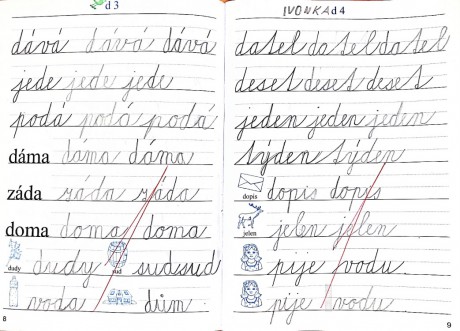 d 3
dává dává dává
jede jede jede
podá podá podá
dáma dáma dáma
záda záda záda
doma doma doma
dudy dudy sud sud sud
voda dům
8
IVONKA d 4
datel datel datel
deset deset deset
jeden jeden jeden
týden týden
dopis dopis dopis
jelen jelen jelen
pije vodu
pije vodu
9